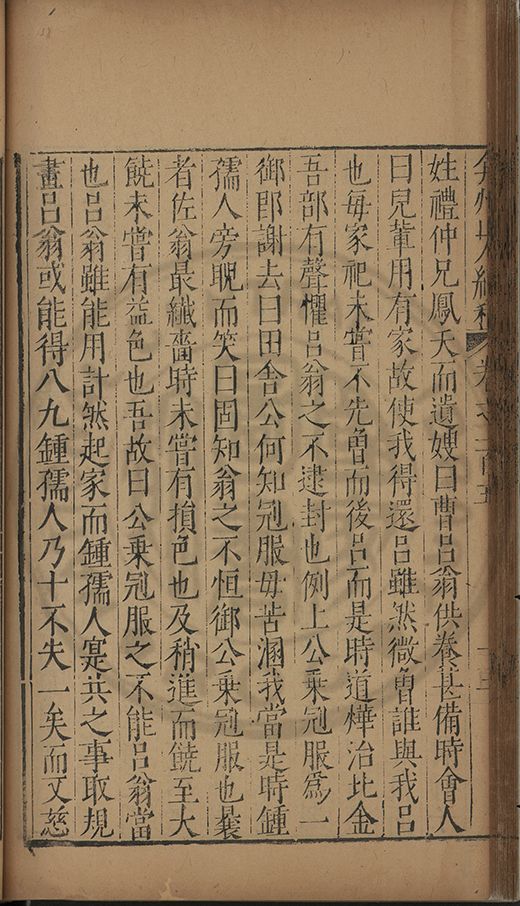 弇州山人續稿 卷之一百五 十三
姓禮仲兄鳳夭而遺嫂曰曹呂翁供養甚備時會人
曰兒輩用有家故使我得還呂雖然微曹誰與我呂
也每家祀未嘗不先曹而後呂而是時道樺治比金
吾部有聲懼呂翁之不逮封也例上公乘冠服爲一
御卽謝去曰田舍公何知冠服毋苦溷我當是時鍾
孺人旁睨而笑曰固知翁之不恒御公乘冠服也曩
者佐翁最纖嗇時未嘗有損色也及稍進而饒至大
饒未嘗有益色也吾故曰公乘冠服之不能呂翁當
也呂翁雖能用計然起家而鍾孺人寔共之事取規
畫呂翁或能得八九鍾孺人乃十不失一矣而又慈